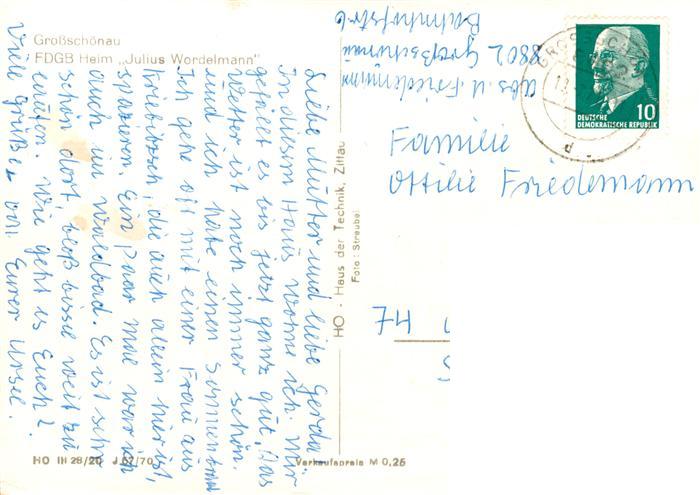 Großschönau
FDGB Heim „Julius Wordelmann"
Liebe Mutter und liebe Gerda
In diesem Haus wohne ich. Mir
gefällt es bis jetzt ganz gut. Das
Wetter ist noch immer schön.
und ich habe einen Sonnenbrand
Ich gehe oft mit einer Frau aus
Kriebitzsch, die auch allein hier ist,
spazieren. Ein paar mal war ich
auch im Waldbad. Es ist sehr
schön dort, bloß bissel weit zu
laufen. Wie geht es Euch?
Viele Grüße von Eurer Ursel.
HO IH 28/20 J 57/70
HO - Haus der Technik, Zittau
Foto: Streubel
Verkaufspreis M 0,25
Abs. U. Friedemann
8802 Großschönau
Bahnhofstr. 6
GROSSSCHÖNAU
d
DEUTSCHE
DEMOKRATISCHE REPUBLIK
10
Familie
Ottilie Friedemann
74